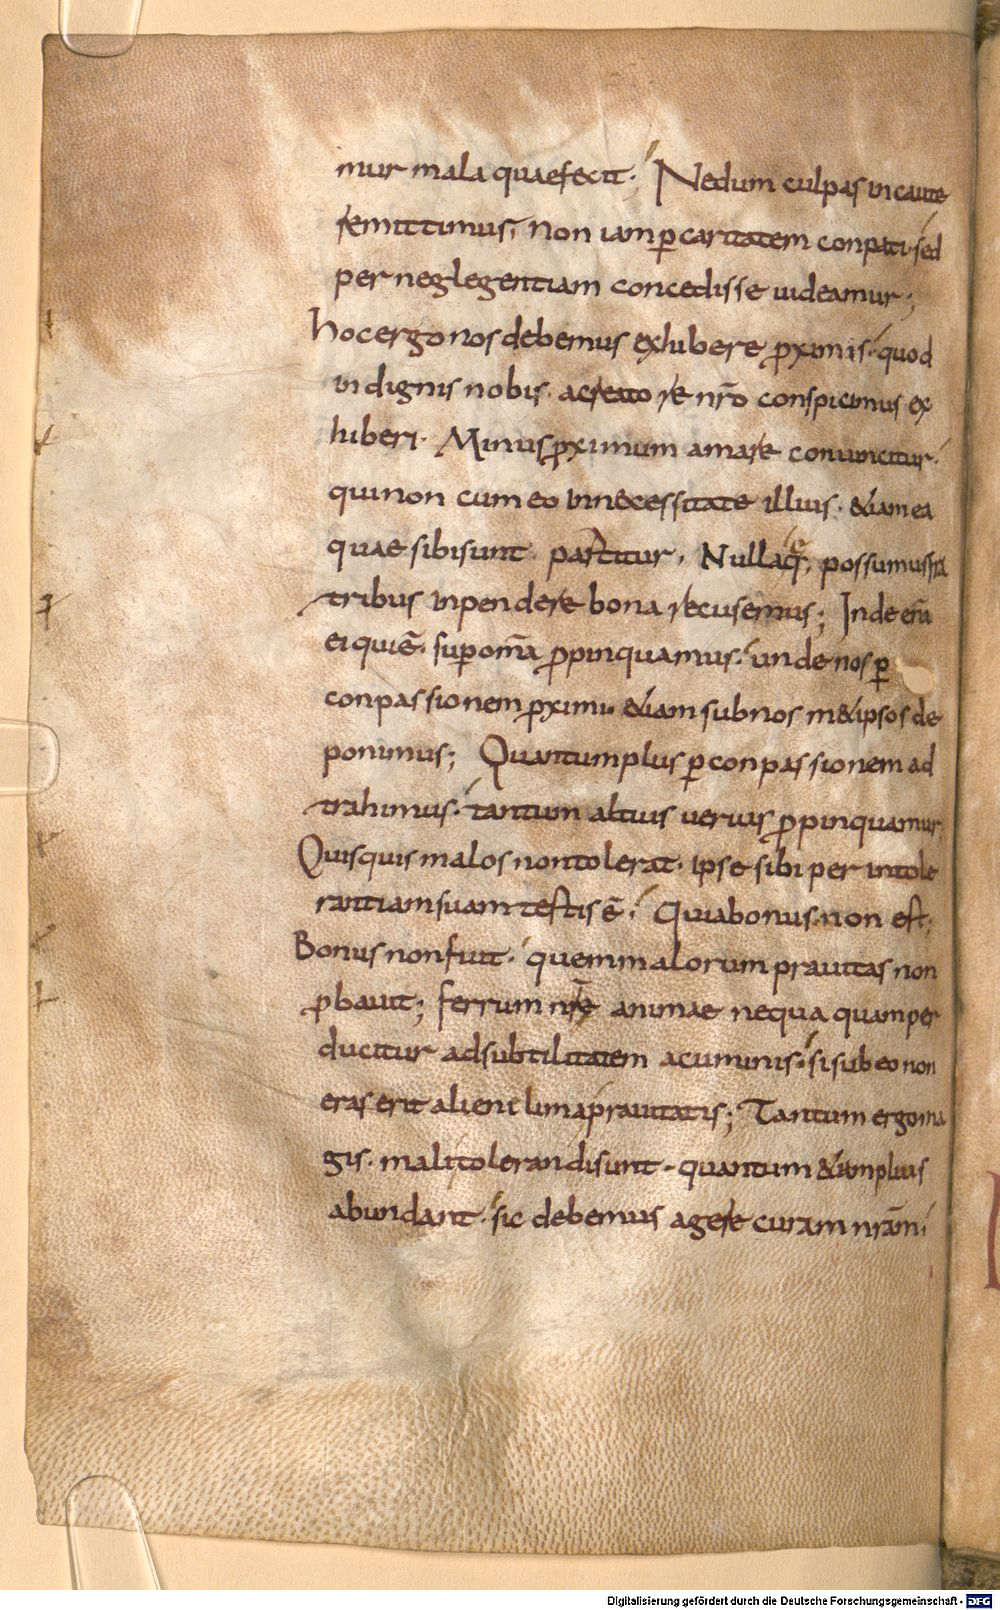 mur mala quae fecit; Ne dum culpas incaute
remittimus, non iam p̲ caritatem conpati sed
per neglegentiam concedisse uideamur;
hoc ergo nos debemus exhibere p̲ximis. quod
indignis nobis. a creatore nr̄o conspicimus ex
hiberi. Minus p̲ximum amare conuincitur.
qui non cum eo in necessitate illius. &iam ea
quae sibi sunt partitur. Nulla possumus fra
tribus inpendere bona recusemus; Inde enī
ei qui ē. sup̲ om̄a p̲pinquamus. unde nos p̲
conpassionem p̲ximi. &iam sub nos m&ipsos de
ponimus; Quantum plus p̲ conpassionem ad
trahimus. tantum altius uerius p̲pinquamur,
Quisquis malos non tolerat. ipse sibi per intole
rantiam suam testis ē; Quia bonus non est;
Bonus non fuit. quem malorum prauitas non
p̲bauit; ferrum nr̄e animae nequaquam per
ducitur ad subtilitatem acuminis. si sub eo non
eraserit alieni lima prauitatis; Tantum ergo ma
gis. mali tolerandi sunt. quantum &iam plus
abundant. sic debemus agere curam nr̄am
Digitalisierung gefördert durch die Deutsche Forschungsgemeinschaft - DFG